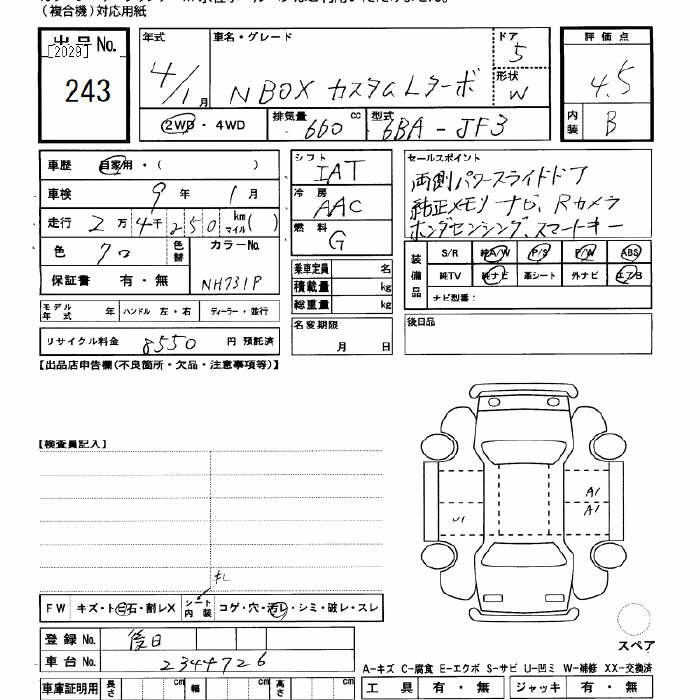 (複合機)対応用紙
出品No.
[2029]
243
年式
4/1月
車名・グレード
N BOX カスタムLターボ
ドア
5
形状
W
評価点
4.5
内装
B
2WD・4WD
排気量 660 cc
型式 6BA-JF3
車歴 自家用・( )
車検 9年 1月
走行 2万4千250 km マイル( )
色 クロ
色替
カラーNo.
NH731P
保証書 有・無
モデル年式 年
ハンドル 左・右
ディーラー・並行
リサイクル料金 8550 円 預託済
シフト
IAT
冷房
AAC
燃料
G
乗車定員 名
積載量 kg
総重量 kg
名変期限
月 日
セールスポイント
両側パワースライドドア
純正メモリナビ、Rカメラ
ホンダセンシング、スマートキー
装備品
S/R 純A/W P/S P/W ABS
純TV 純ナビ 革シート 外ナビ エアB
ナビ型番:
後日品
【出品店申告欄(不良箇所・欠品・注意事項等)】
【検査員記入】
A1
A1
U1
キレ
FW キズ・ト石・割レX
シート内装 コゲ・穴・汚レ・シミ・破レ・スレ
登録No. 後日
車台No. 2344726
スペア
A-キズ C-腐食 E-エクボ S-サビ U-凹ミ W-補修 XX-交換済
車庫証明用 長さ cm 幅 cm 高さ cm
工具 有・無 ジャッキ 有・無